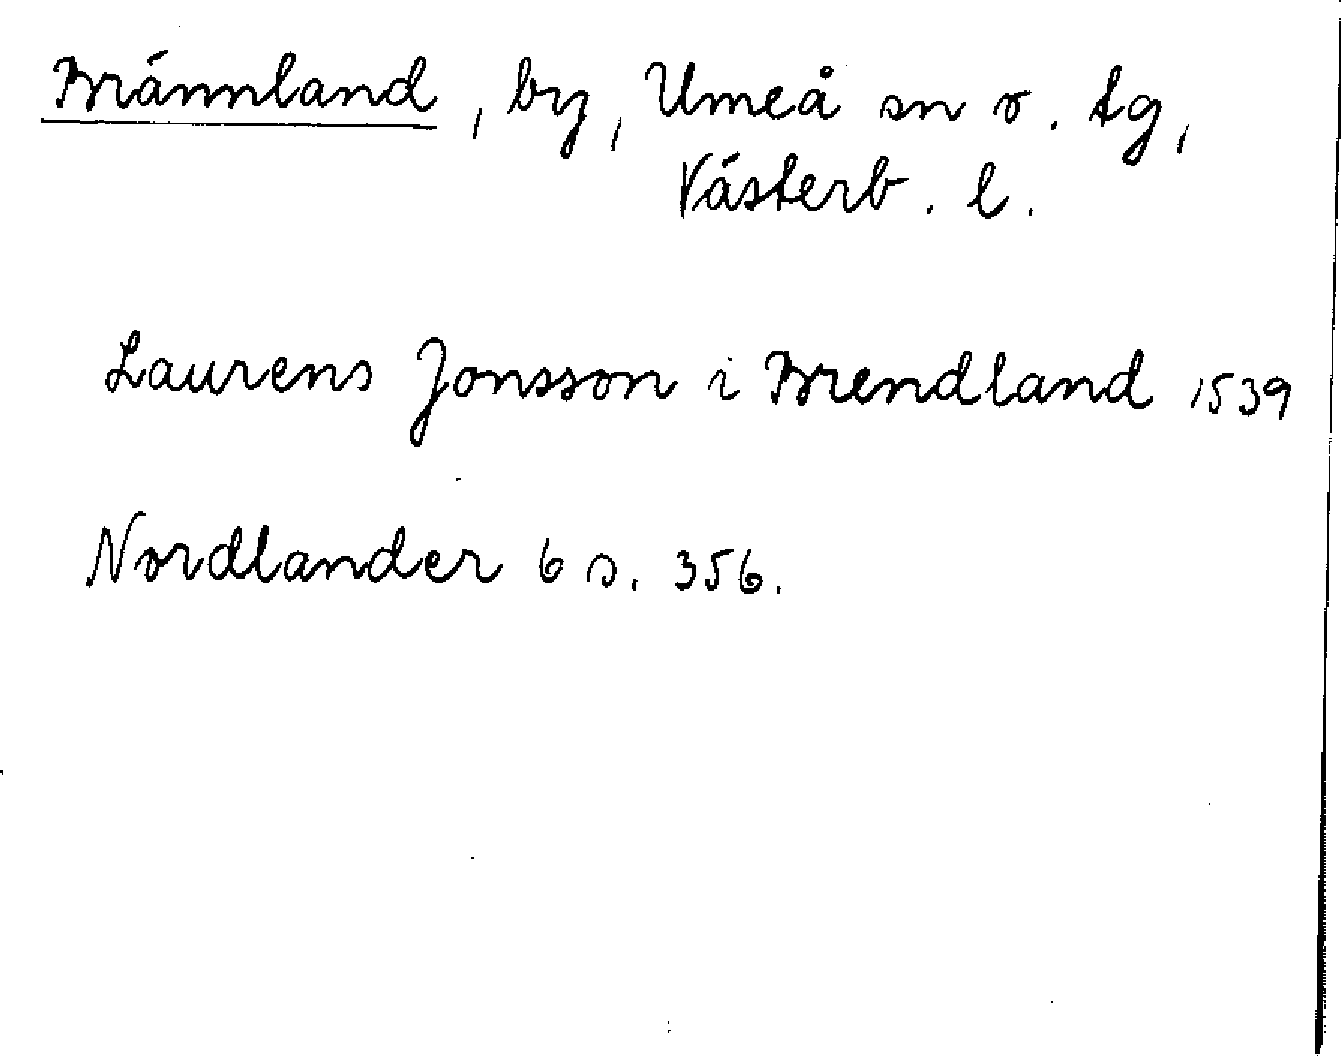 Brännland, by, Umeå sn o. tg,
Västerb. l.
Laurens Jonsson i Brendland 1539
Nordlander 6 s. 356.